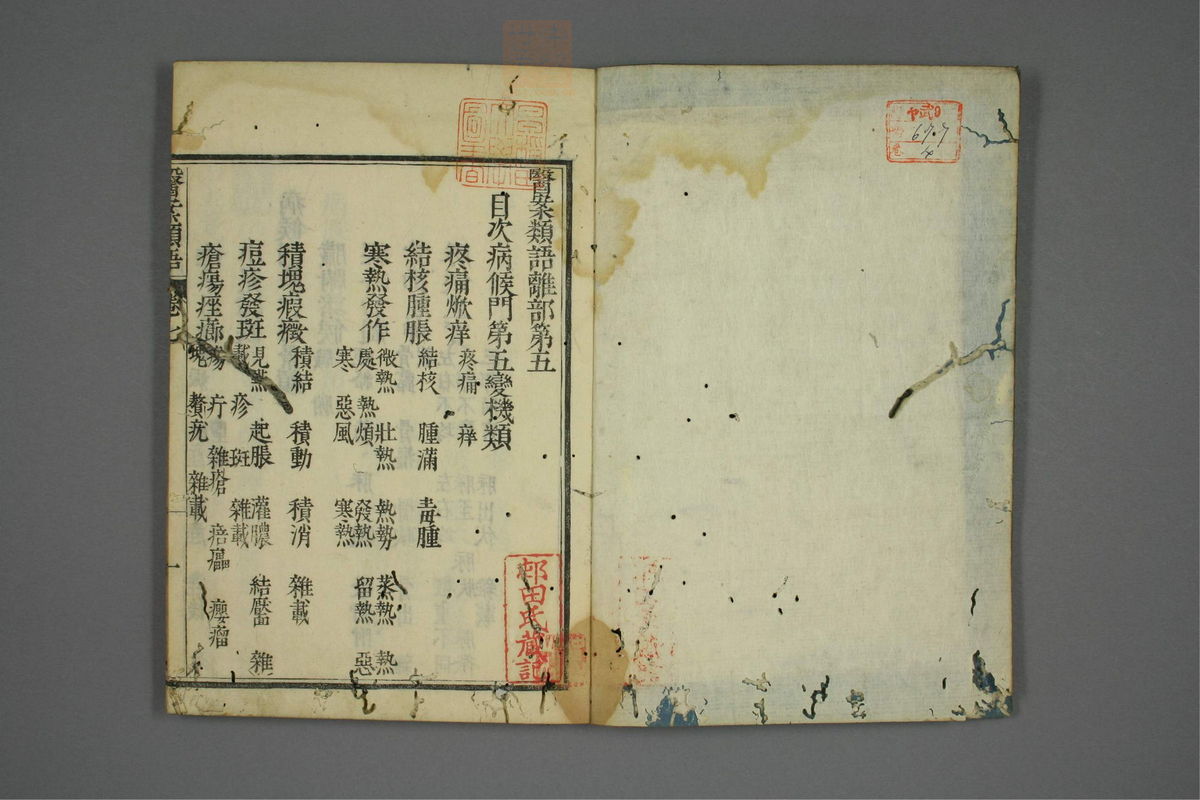 醫案類語離部第五
目次病候門第五變機類
疼痛焮痒 疼痛 痒
結核腫脹 結核 腫滿 毒腫
寒熱發作 微熱 壯熱 熱勢 蒸熱 熱
處 熱煩 發熱 留熱 惡
寒 惡風 寒熱
積塊瘕癥 積結 積動 積消 雜載
痘疹發斑 見點 起脹 灌膿 結靨 雜
載 疹 斑 雜載
瘡瘍痤癤 瘍 疔 雜瘡 瘖㿔 癭瘤
塊 贅疣 雜載
醫案類語 卷七 一
邨田氏藏記
67.7
4